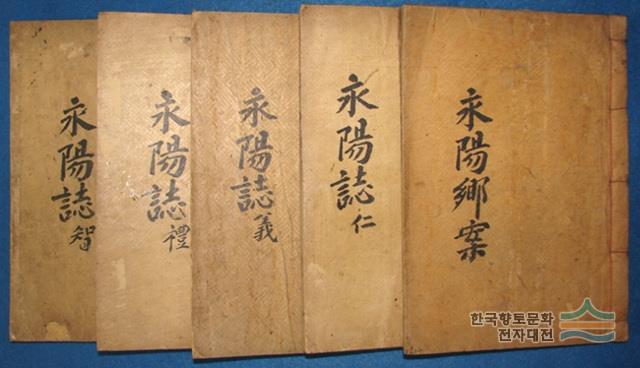 永陽鄉案
永陽誌 仁
永陽誌 義
永陽誌 禮
永陽誌 智
한국향토문화
전자대전